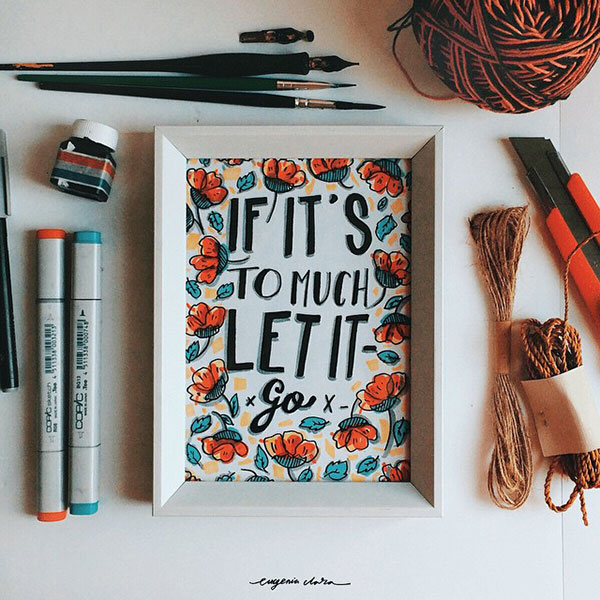 IF IT'S
TO MUCH
LET IT-
x go x-
COPIC sketch
COPIC
eugenia clara